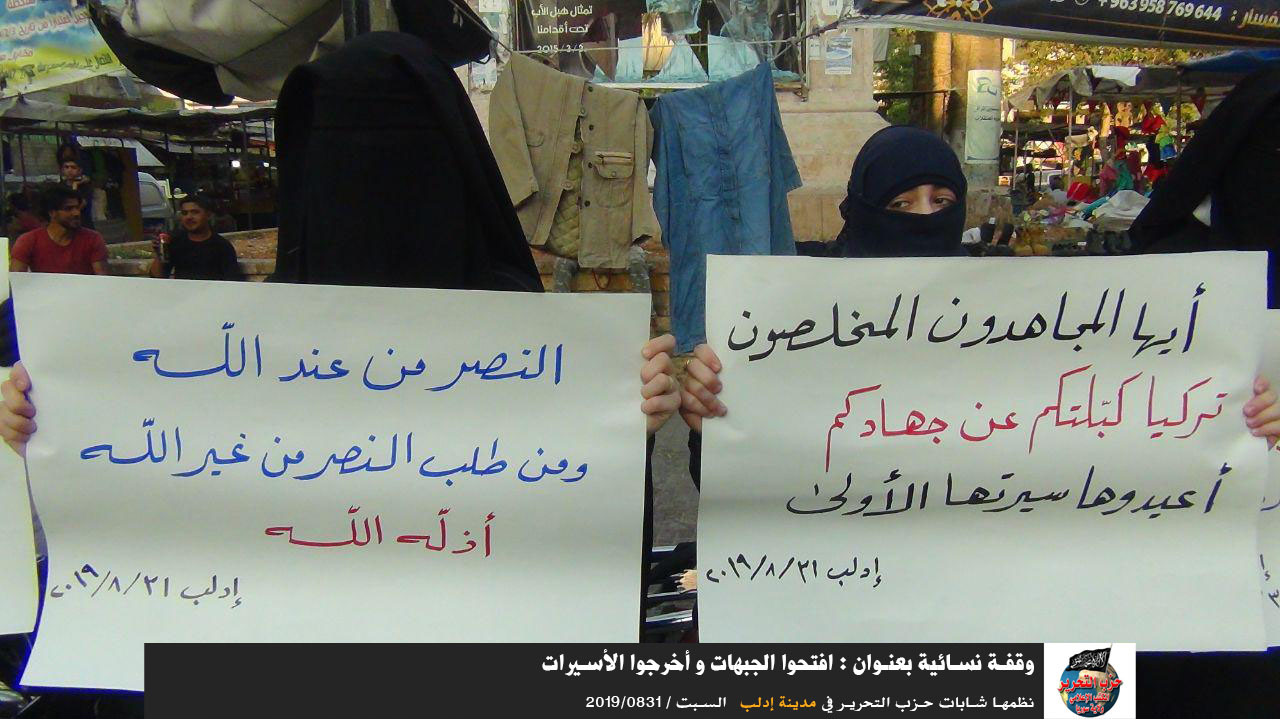 تمثال هبل الأب
تحت أقدامنا
2015/3/2
+963 958 769 644
النصر من عند اللّه
ومن طلب النصر من غير اللّه
أذلّه اللّه
إدلب ٢١/٨/٢٠١٩
أيها المجاهدون المخلصون
تركيا كبّلتكم عن جهادكم
أعيدوها سيرتها الأولى
إدلب ٣١/٨/٢٠١٩
وقفة نسائية بعنوان : افتحوا الجبهات و أخرجوا الأسيرات
نظمها شابات حزب التحرير في مدينة إدلب السبت / 2019/0831
حزب التحرير